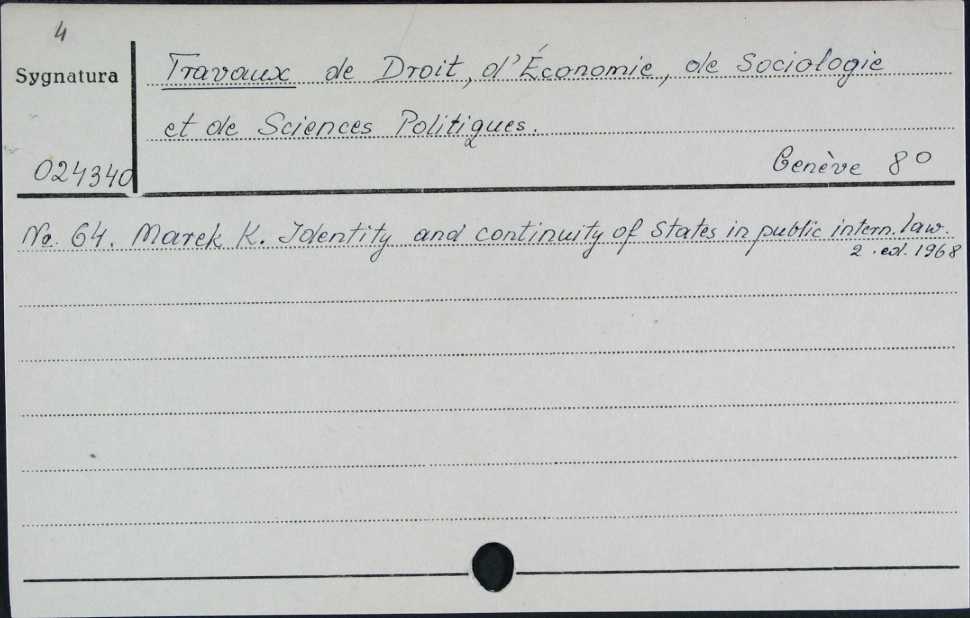 4
Sygnatura
Travaux de Droit, d'Économie, de Sociologie
et de Sciences Politiques.
024340
Genève 8°
No. 64. Marek K. Identity and continuity of States in public intern. law.
2. ed. 1968